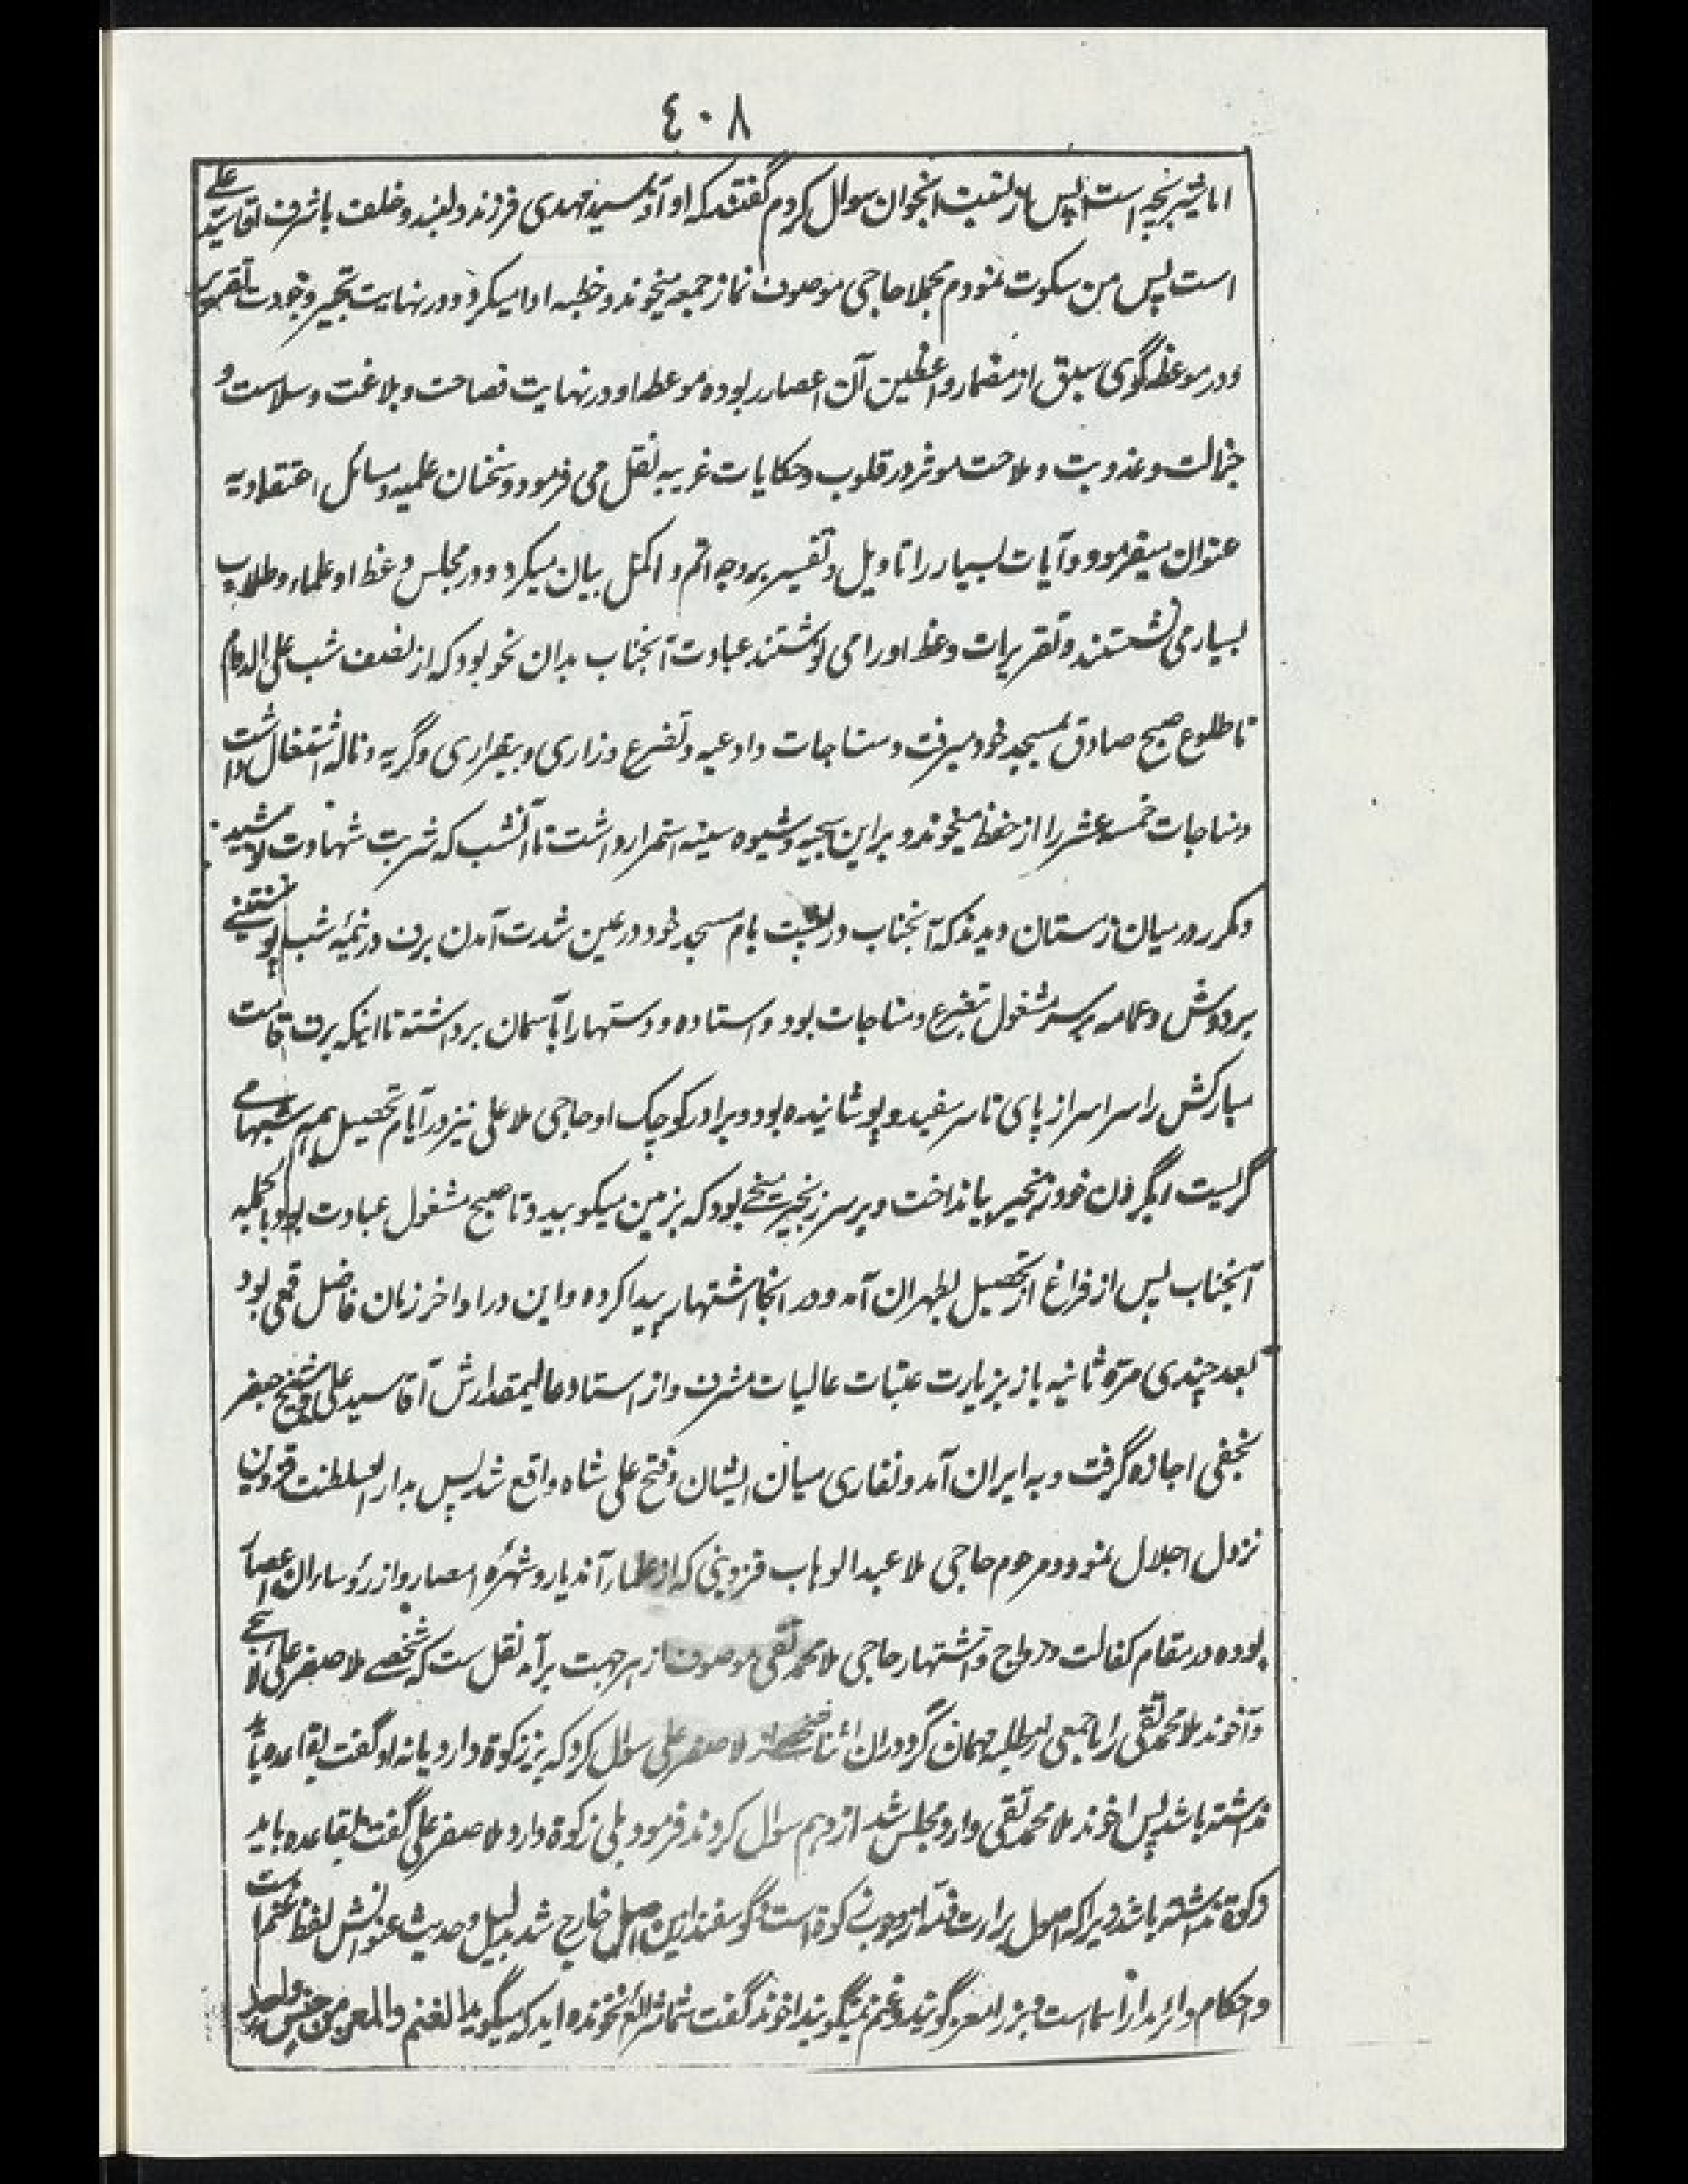 ٤٠٨
اما شیر بچه است پس از نسبت آنجوان سوال کردم گفتند که او آقا سید مهدی فرزند دلبند و خلف باشرف اقا سید علی
است پس من سکوت نمودم مجملا حاجی موصوف نماز جمعه میخوند و خطبه ادا میکرد و در نهایت تبحر و جودت تقریر
و در موعظه گوی سبق از مضمار واعظین آن اعصار ربوده مواعظ او در نهایت فصاحت و بلاغت و سلاست و
جزالت و عذوبت و ملاحت موثر در قلوب و حکایات غریبه نقل می فرمود و سخنان علمیه و مسائل اعتقادیه
عنوان میفرمود و آیات بسیار را تاویل و تفسیر بر وجه اتم و اکمل بیان میکرد و در مجلس وعظ او علماء و طلاب
بسیار می نشستند و تقریرات وعظ او را می نوشتند عبادت آنجناب بدان نحو بود که از نصف شب علی الدوام
تا طلوع صبح صادق بمسجد خود میرفت و مناجات و ادعیه و تضرع و زاری و بیقراری و گریه و ناله اشتغال داشت
و مناجات خمسة عشر را از حفظ میخوند و بر این سجیه و شیوه سینه استمرار داشت تا آنشب که شربت شهادت نوشید
و مکرر در میان زمستان دیدند که آنجناب در پشت بام مسجد خود در عین شدت آمدن برف در نیمه شب پوستینی
بر دوش و عمامه بر سر مشغول تضرع و مناجات بود و استاده و دستها را بآسمان برداشته تا اینکه برف قامت
مبارکش را سراسر از پای تا سر سفید و پوشانیده بود و برادر کوچک او حاجی ملا علی نیز در آیام تحصیل همه شبها می
گریست بگردن خود زنجیر میانداخت و بر سر زنجیر میخی بود که بزمین میکوبید و تا صبح مشغول عبادت بود بالجمله
آنجناب پس از فراغ از تحصیل بطهران آمد و در انجا اشتهار پیدا کرده و این در اواخر زمان فاضل قمی بود
بعد چندی مرة ثانیه باز بزیارت عتبات عالیات مشرف و از استاد عالیمقدارش آقا سید علی و شیخ جعفر
نجفی اجازه گرفت و به ایران آمد و نقاری میان ایشان و فتح علی شاه واقع شد پس بدار السلطنت قزوین
نزول اجلال نمود و مرحوم حاجی ملا عبدالوهاب قزوینی که از علمای آندیار و شهره امصار و از رؤسای آن اعصار
بوده در مقام کفالت و رواج و اشتهار حاجی ملا محمد تقی موصوف از هر جهت برآمد نقل ست که شخصے ملا صفر علی لاهیجی
و آخوند ملا محمد تقی را با جمعی از طلبه مهمان کرد در ان اثنا شخصی از ملا صفر علی سؤال کرد که بز زکوة دارد یا نه او گفت بقاعده باید
نداشته باشد پس اخوند ملا محمد تقی وارد مجلس شد از او هم سؤال کردند فرمود بلی زکوة دارد ملا صفر علی گفت بقاعده باید
زکوة نداشته باشد زیرا که اصل برائت ذمه از وجوب زکوة است و گوسفند از این اصل خارج شد بدلیل و حدیث عنوانش لفظ غنم است
و احکام دائر مدار اسما است و بز را معز گویند و غنم نمیگویند اخوند گفت شما شرائع نخونده اید که میگوید الغنم والمعز من جنس واحد